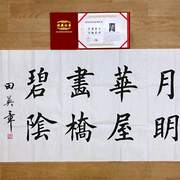 月明
華屋
畫橋
碧陰
田英章